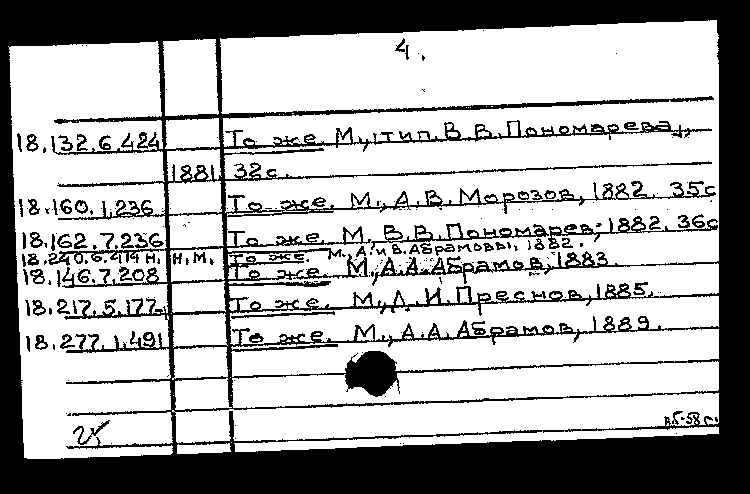 4.
18.132.6.424 То же. М., тип. В. В. Пономарева,
1881. 32с.
18.160.1.236 То же. М., А. В. Морозов, 1882. 35с
18.162.7.236 То же. М., В. В. Пономарев, 1882. 36с
18.240.6.414 н. Н.М. То же. М., А. и В. Абрамовы, 1882.
18.146.7.208 То же. М., А.А. Абрамов, 1883.
18.217.5.177 То же. М., Д. И. Преснов, 1885.
18.277.1.491 То же. М., А. А. Абрамов, 1889.